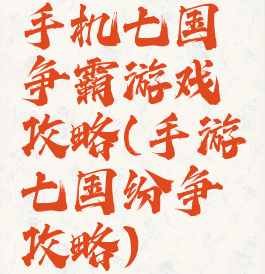 手机七国
争霸游戏
攻略(手游
七国纷争
攻略)